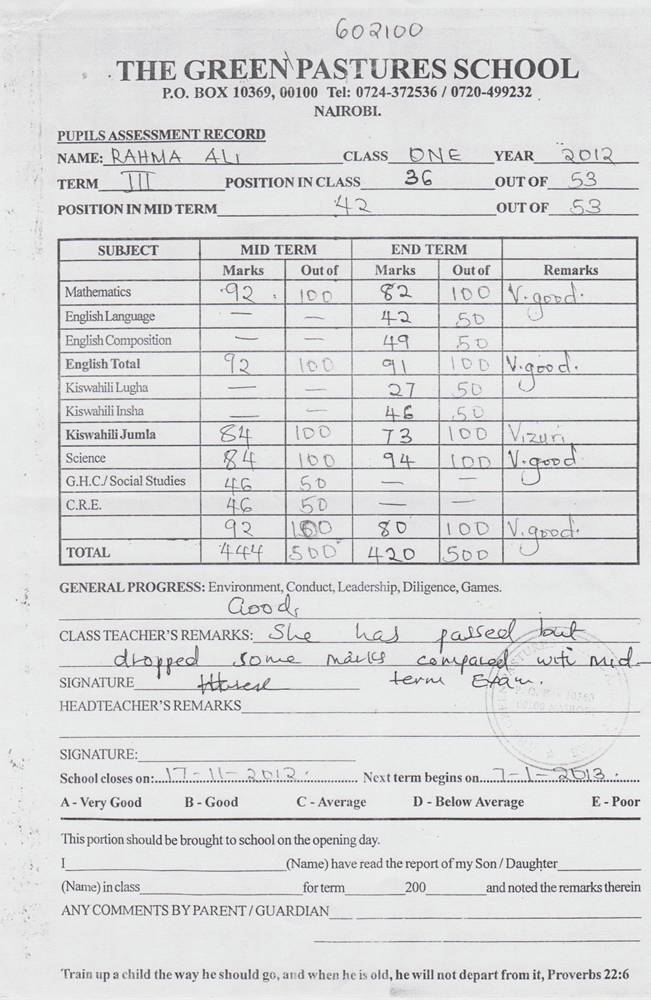 602100
THE GREEN PASTURES SCHOOL
P.O. BOX 10369, 00100 Tel: 0724-372536 / 0720-499232
NAIROBI.
PUPILS ASSESSMENT RECORD
NAME: RAHMA ALI CLASS ONE YEAR 2012
TERM III POSITION IN CLASS 36 OUT OF 53
POSITION IN MID TERM 42 OUT OF 53
SUBJECT MID TERM END TERM
Marks Out of Marks Out of Remarks
Mathematics 92 100 82 100 V.good.
English Language — — 42 50
English Composition — — 49 50
English Total 92 100 91 100 V.good.
Kiswahili Lugha — — 27 50
Kiswahili Insha — — 46 50
Kiswahili Jumla 84 100 73 100 Vizuri
Science 84 100 94 100 V.good
G.H.C./Social Studies 46 50 — —
C.R.E. 46 50 — —
92 100 80 100 V.good.
TOTAL 444 500 420 500
GENERAL PROGRESS: Environment, Conduct, Leadership, Diligence, Games.
Good,
CLASS TEACHER'S REMARKS: She has passed but
dropped some marks compared with mid-
SIGNATURE term Exam.
HEADTEACHER'S REMARKS
SIGNATURE:
School closes on:...17-11-2012... Next term begins on...7-1-2013...
A - Very Good B - Good C - Average D - Below Average E - Poor
This portion should be brought to school on the opening day.
I (Name) have read the report of my Son / Daughter
(Name) in class for term 200 and noted the remarks therein
ANY COMMENTS BY PARENT / GUARDIAN
Train up a child the way he should go, and when he is old, he will not depart from it, Proverbs 22:6